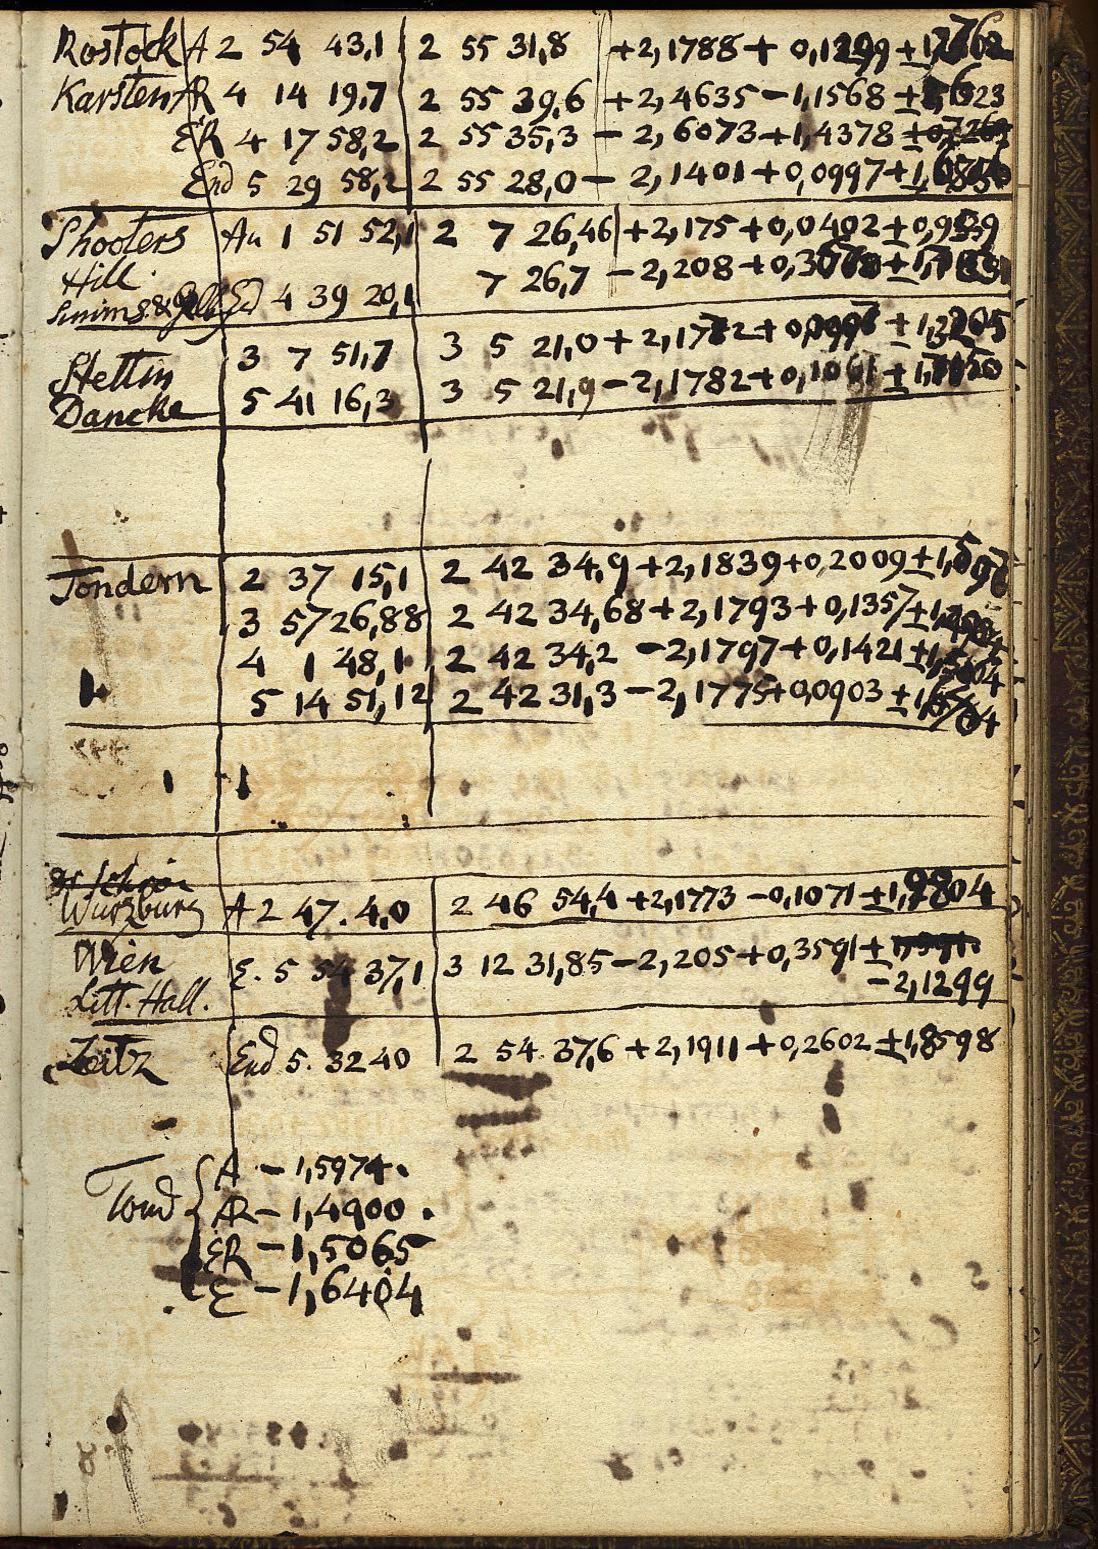 Rostock A 2 54 43,1 2 55 31,8 +2,1788 + 0,1299 ±
Karsten AR 4 14 19,7 2 55 39,6 +2,4635 -1,1568 ±
ER 4 17 58,2 2 55 35,3 - 2,6073 +1,4378
End 5 29 58,2 2 55 28,0 - 2,1401 +0,0997 +
Shooters An 1 51 52,1 2 7 26,46 +2,175 +0,0402 ±0,9539
Hill. 7 26,7 - 2,208 +
Simms & Ed 4 39 20,1
3 7 51,7 3 5 21,0 + 2,1782 + ± 1,2205
Stettin 5 41 16,3 3 5 21,9 - 2,1782 + 0,1061 ±
Dancke
Tondern 2 37 15,1 2 42 34,9 +2,1839 +0,2009 ±1,597
3 57 26,88 2 42 34,68 +2,1793 + 0,1357 ±
4 1 48,1 2 42 34,2 -2,1797 + 0,1421 ±
5 14 51,12 2 42 31,3 - 2,1775 +0,0903 ±
Wurzburg A 2 47. 4,0 2 46 54,4 +2,1773 -0,1071 ±1,9804
Wien E. 5 54 37,1 3 12 31,85 -2,205 +0,3591 ±
Litt. Hall. -2,1299
Zeitz End 5. 32 40 2 54 37,6 +2,1911 +0,2602 ±1,8598
Tond { A - 1,5974.
AR - 1,4900.
ER - 1,5065
E - 1,6404